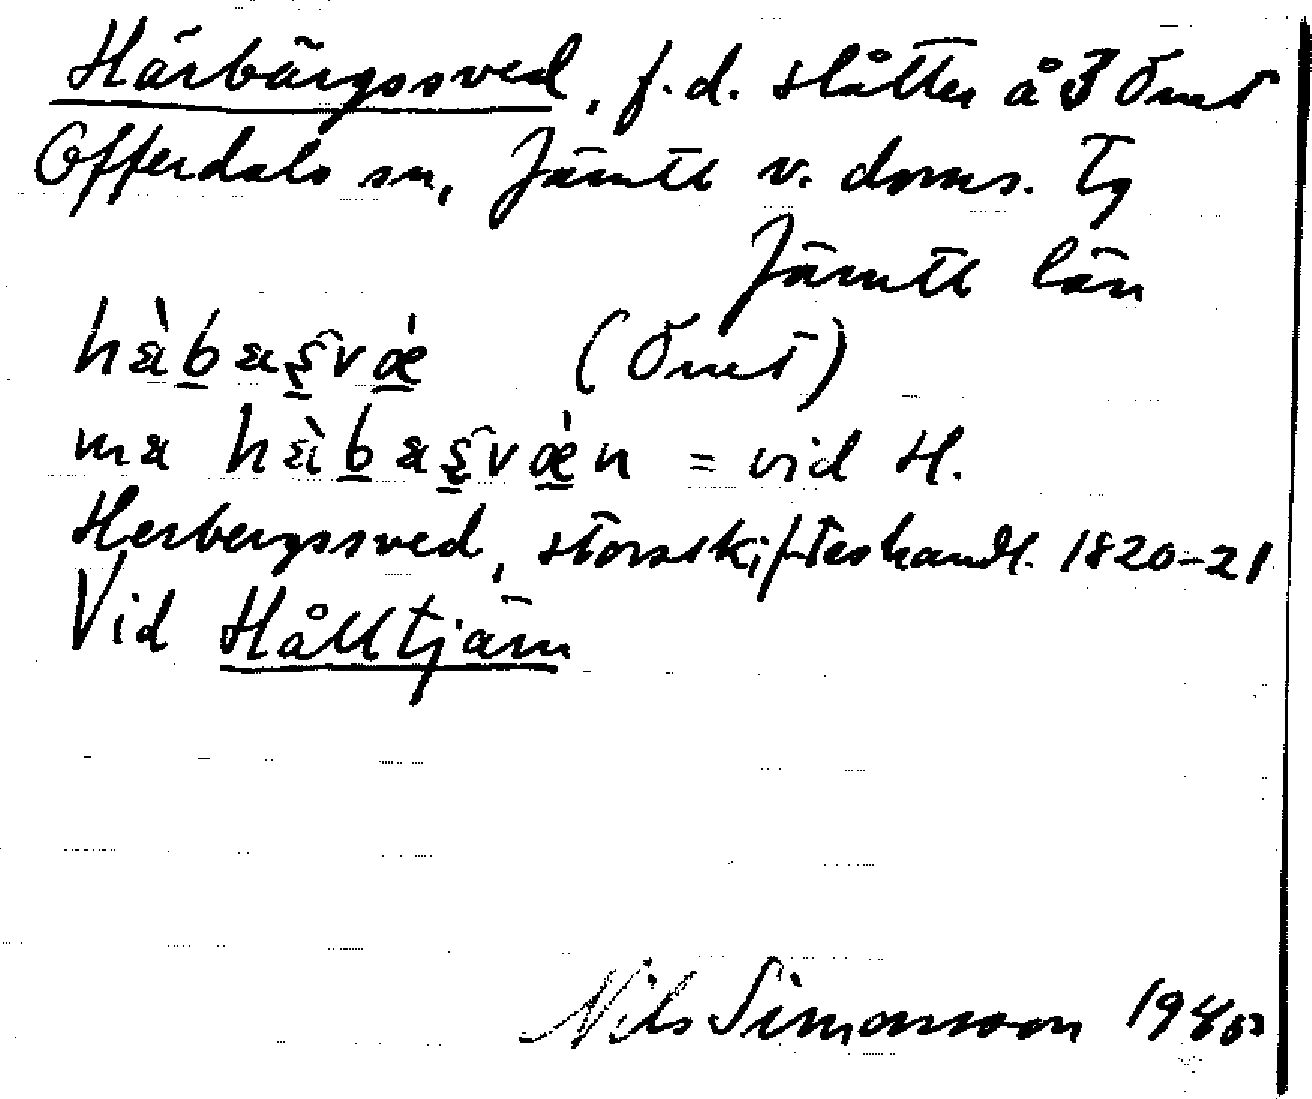 Härbärgssved, f.d. slåtter å 3 Önet
Offerdals sn, Jämtl v. doms. Tg
Jämtl län
hàbaṣvǽ (Önet)
ma hàbaṣvǽn = vid H.
Herbergssved, storskifteshandl. 1820-21
Vid Hålltjärn
Nils Simonsson